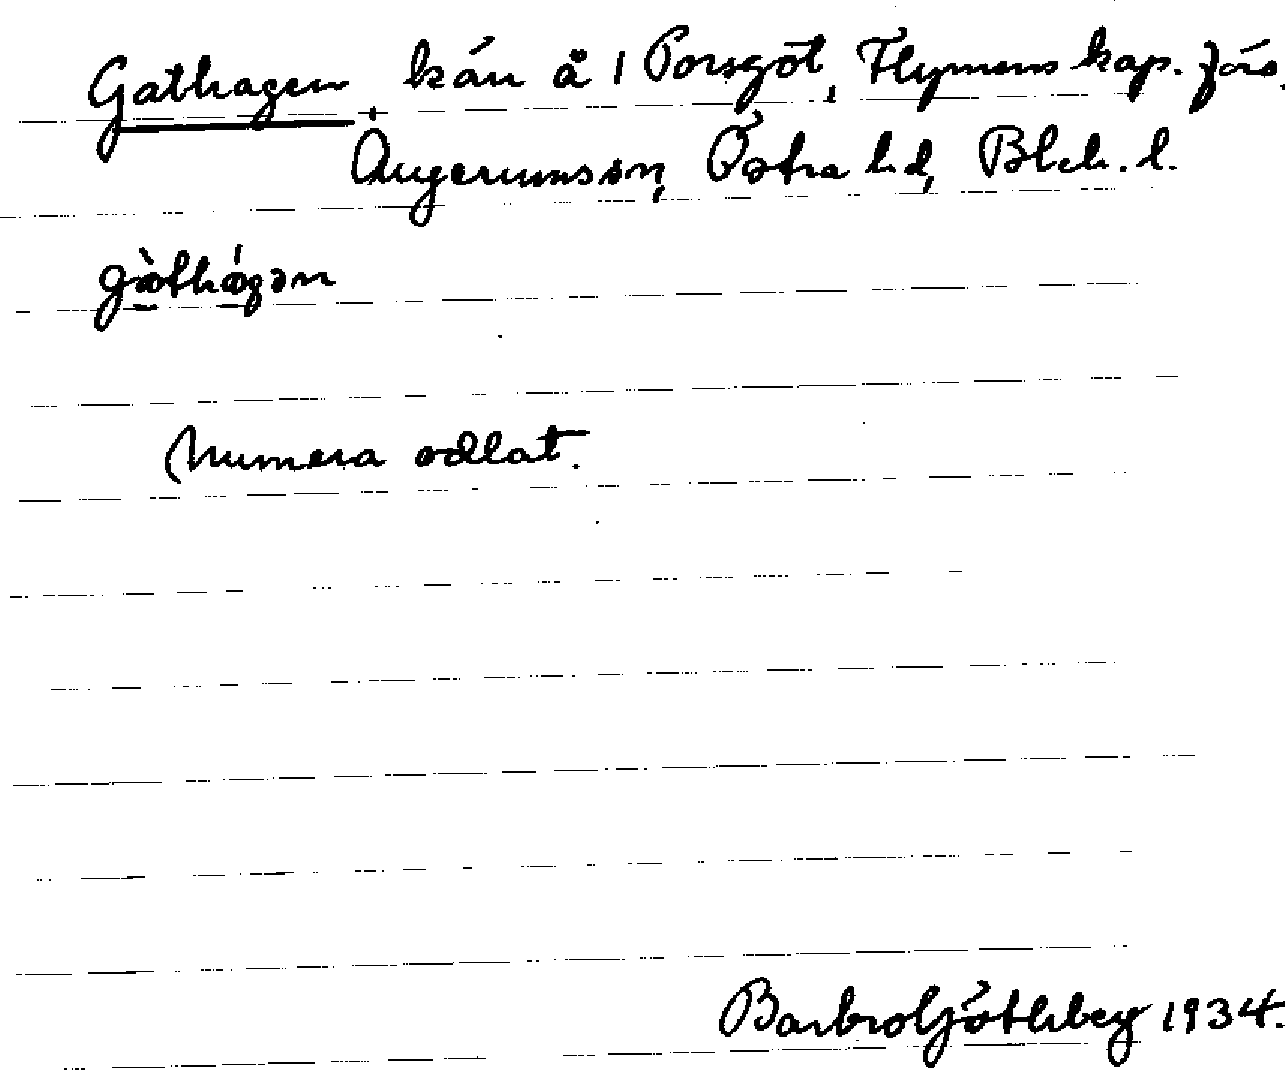 Gathagen, kärr å 1 Porsgöt, Flymens kap. förs.
Augerums sn, Östra hd, Blek. l.
gàthágən
Numera odlat.
Barbro Göthberg 1934.